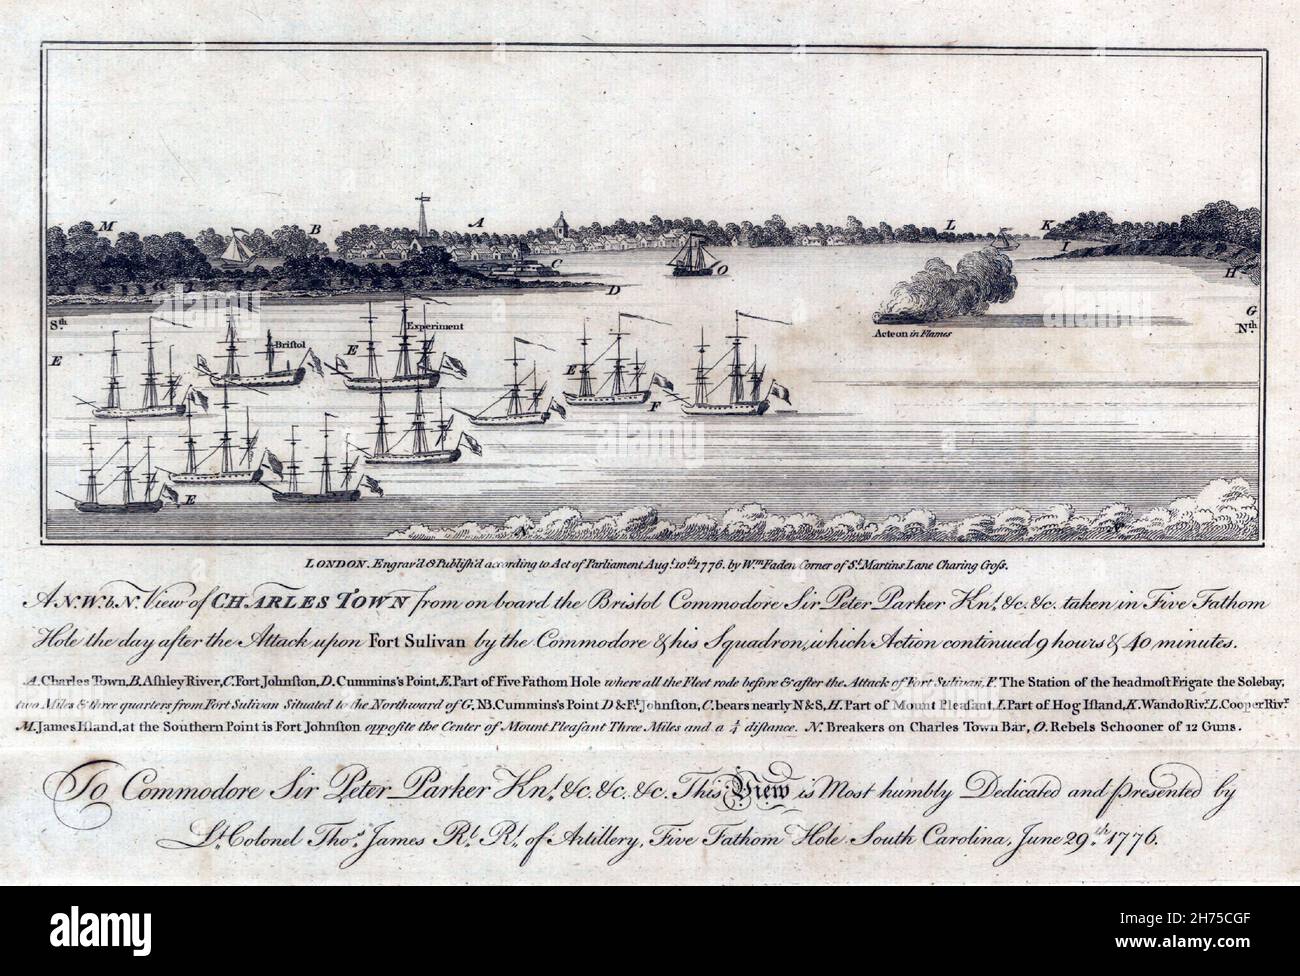 M
B
A
L
K
I
C
O
H
D
G
Sth
Nth
Acteon in Flames
Experiment
Bristol
E
E
E
F
E
N
N
LONDON. Engrav'd & Publish'd according to Act of Parliament Augt. 10th. 1776. by Wm. Faden Corner of St. Martins Lane Charing Cross.
A N.W.b.N. View of CHARLES TOWN from on board the Bristol Commodore Sir Peter Parker Knt. &c. &c. taken in Five Fathom
Hole the day after the Attack upon Fort Sulivan by the Commodore & his Squadron, which Action continued 9 hours & 40 minutes.
A. Charles Town, B. Ashley River, C. Fort Johnston, D. Cummins's Point, E. Part of Five Fathom Hole where all the Fleet rode before & after the Attack of Fort Sulivan, F. The Station of the headmost Frigate the Solebay,
two Miles & three quarters from Fort Sulivan Situated to the Northward of G, NB. Cummins's Point D & Ft. Johnston, C. bears nearly N & S, H. Part of Mount Pleasant, I. Part of Hog Island, K. Wando Rivr. L. Cooper Rivr.
M. James Island, at the Southern Point is Fort Johnston opposite the Center of Mount Pleasant Three Miles and a ¼ distance. N. Breakers on Charles Town Bar, O. Rebels Schooner of 12 Guns.
To Commodore Sir Peter Parker Knt. &c. &c. &c. This View is Most humbly Dedicated and presented by
Lt. Colonel Thos. James Rl. Rt. of Artillery, Five Fathom Hole South Carolina, June 29th. 1776.
alamy
Image ID: 2H75CGF
www.alamy.com